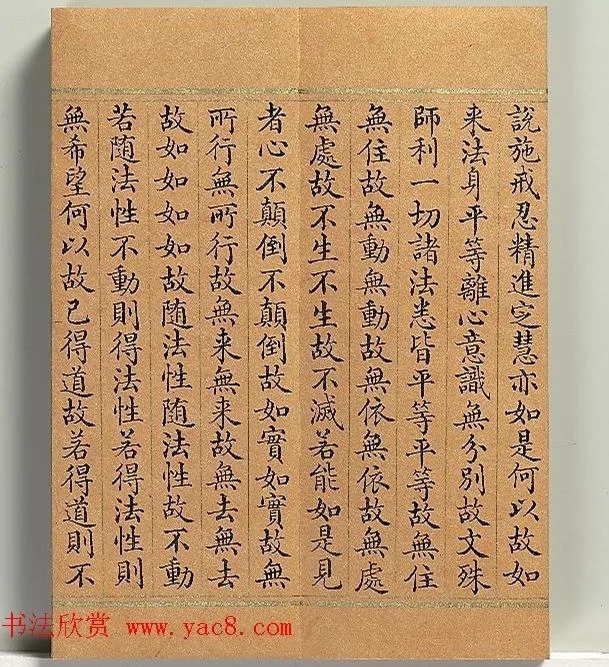 說施戒忍精進定慧亦如是何以故如
来法身平等離心意識無分別故文殊
師利一切諸法悉皆平等平等故無住
無住故無動無動故無依無依故無處
無處故不生不生故不滅若能如是見
者心不顛倒不顛倒故如實如實故無
所行無所行故無来無来故無去無去
故如如如如故随法性随法性故不動
若随法性不動則得法性若得法性則
無希望何以故已得道故若得道則不
书法欣赏 www.yac8.com